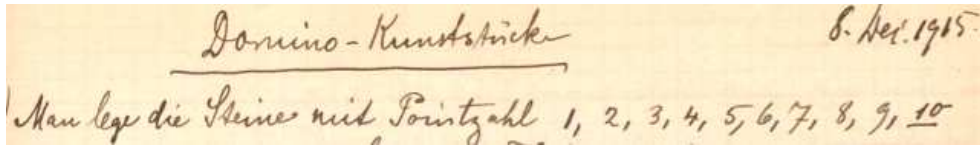 Domino-Kunststücke 8. Dez. 1915.
Man lege die Steine mit Pointzahl 1, 2, 3, 4, 5, 6, 7, 8, 9, 10